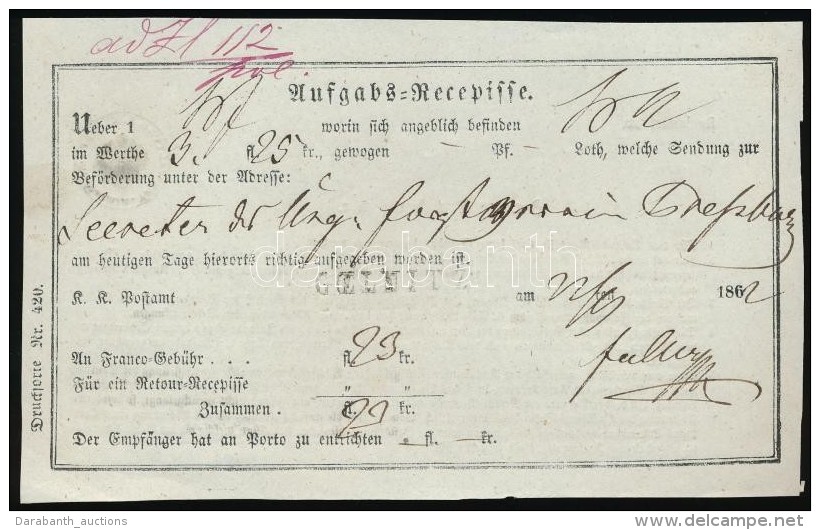 ad Zl 112
Aufgabs=Recepisse.
Ueber 1 worin sich angeblich befinden
im Werthe 3. fl 25 kr., gewogen — Pf. — Loth, welche Sendung zur
Beförderung unter der Adresse:
Secreter des Ung: Forstverein Preßburg
am heutigen Tage hierorts richtig aufgegeben worden ist.
darabanth
K. K. Postamt am ten 1862
An Franco-Gebühr . . . fl. 23 kr.
Für ein Retour-Recepisse " "
Zusammen . fl. 23 kr.
Der Empfänger hat an Porto zu entrichten - fl. — kr.
Drucksorte Nr. 420.
Darabanth_auctions
delcampe.net